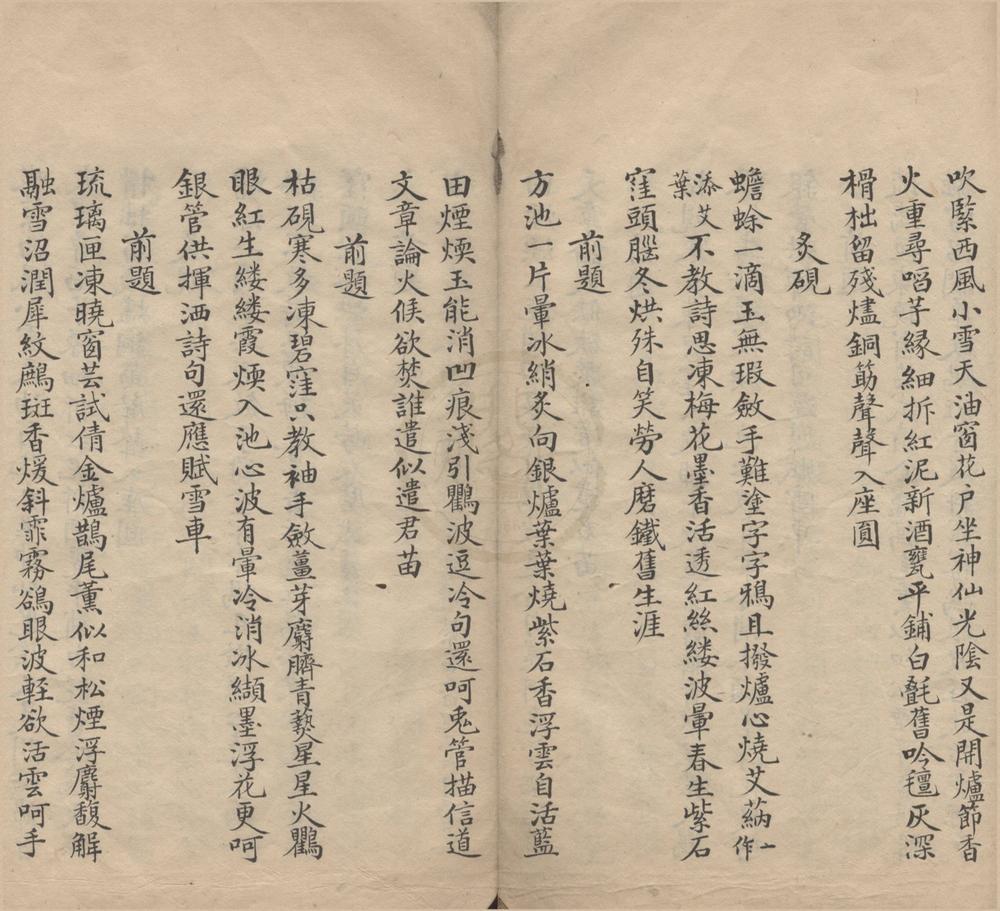 吹緊西風小雪天油窗花戶坐神仙光陰又是開爐節香
火重尋啗芋緣細拆紅泥新酒甕平鋪白氎舊吟氊灰深
榾柮留殘燼銅筯聲聲入座圓
炙硯
蟾蜍一滴玉無瑕斂手難塗字字鴉且撥爐心燒艾蒳一作
添艾葉不教詩思凍梅花墨香活透紅絲縷波暈春生紫石
窪頭腦冬烘殊自笑勞人磨鐵舊生涯
前題
方池一片暈冰綃炙向銀爐葉葉燒紫石香浮雲自活藍
田煙煗玉能消凹痕淺引鸜波逗冷句還呵兎管描信道
文章論火候欲焚誰遣似遣君苗
前題
枯硯寒多凍碧窪只教袖手斂薑芽麝臍青爇星星火鸜
眼紅生縷縷霞煗入池心波有暈冷消冰纈墨浮花更呵
銀管供揮洒詩句還應賦雪車
前題
琉璃匣凍曉窗芸試倩金爐鵲尾薰似和松煙浮麝馥解
融雪沼潤犀紋鷓斑香煖斜霏霧鴝眼波輕欲活雲呵手